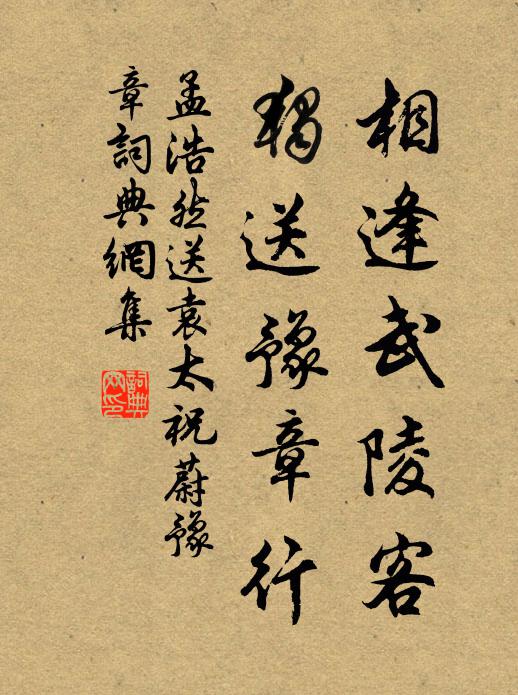 相逢武陵客
獨送豫章行
孟浩然送袁太祝蔚豫
章詞典網集
詞典
网印